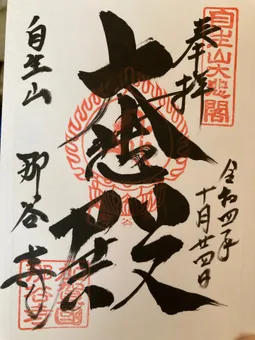 奉拝
自生山大悲閣
令和四年
十月廿四日
大悲殿
自生山
那谷寺